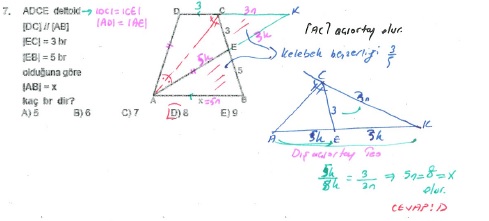 7. ADCE deltoid → |DC| = |CE|
|AD| = |AE|
[DC] // [AB]
|EC| = 3 br
|EB| = 5 br
olduğuna göre
|AB| = x
kaç br dir?
A) 5 B) 6 C) 7 D) 8 E) 9
D 3 C 3n K
3k
E
5k
5
A x = 5n B
[AC] açıortay olur.
Kelebek benzerliği 3/5
C
3
3n
A 5k E 3k K
Dış açıortay Teo
5k/8k = 3/3n ⇒ 5n = 8 = x
olur.
CEVAP: D